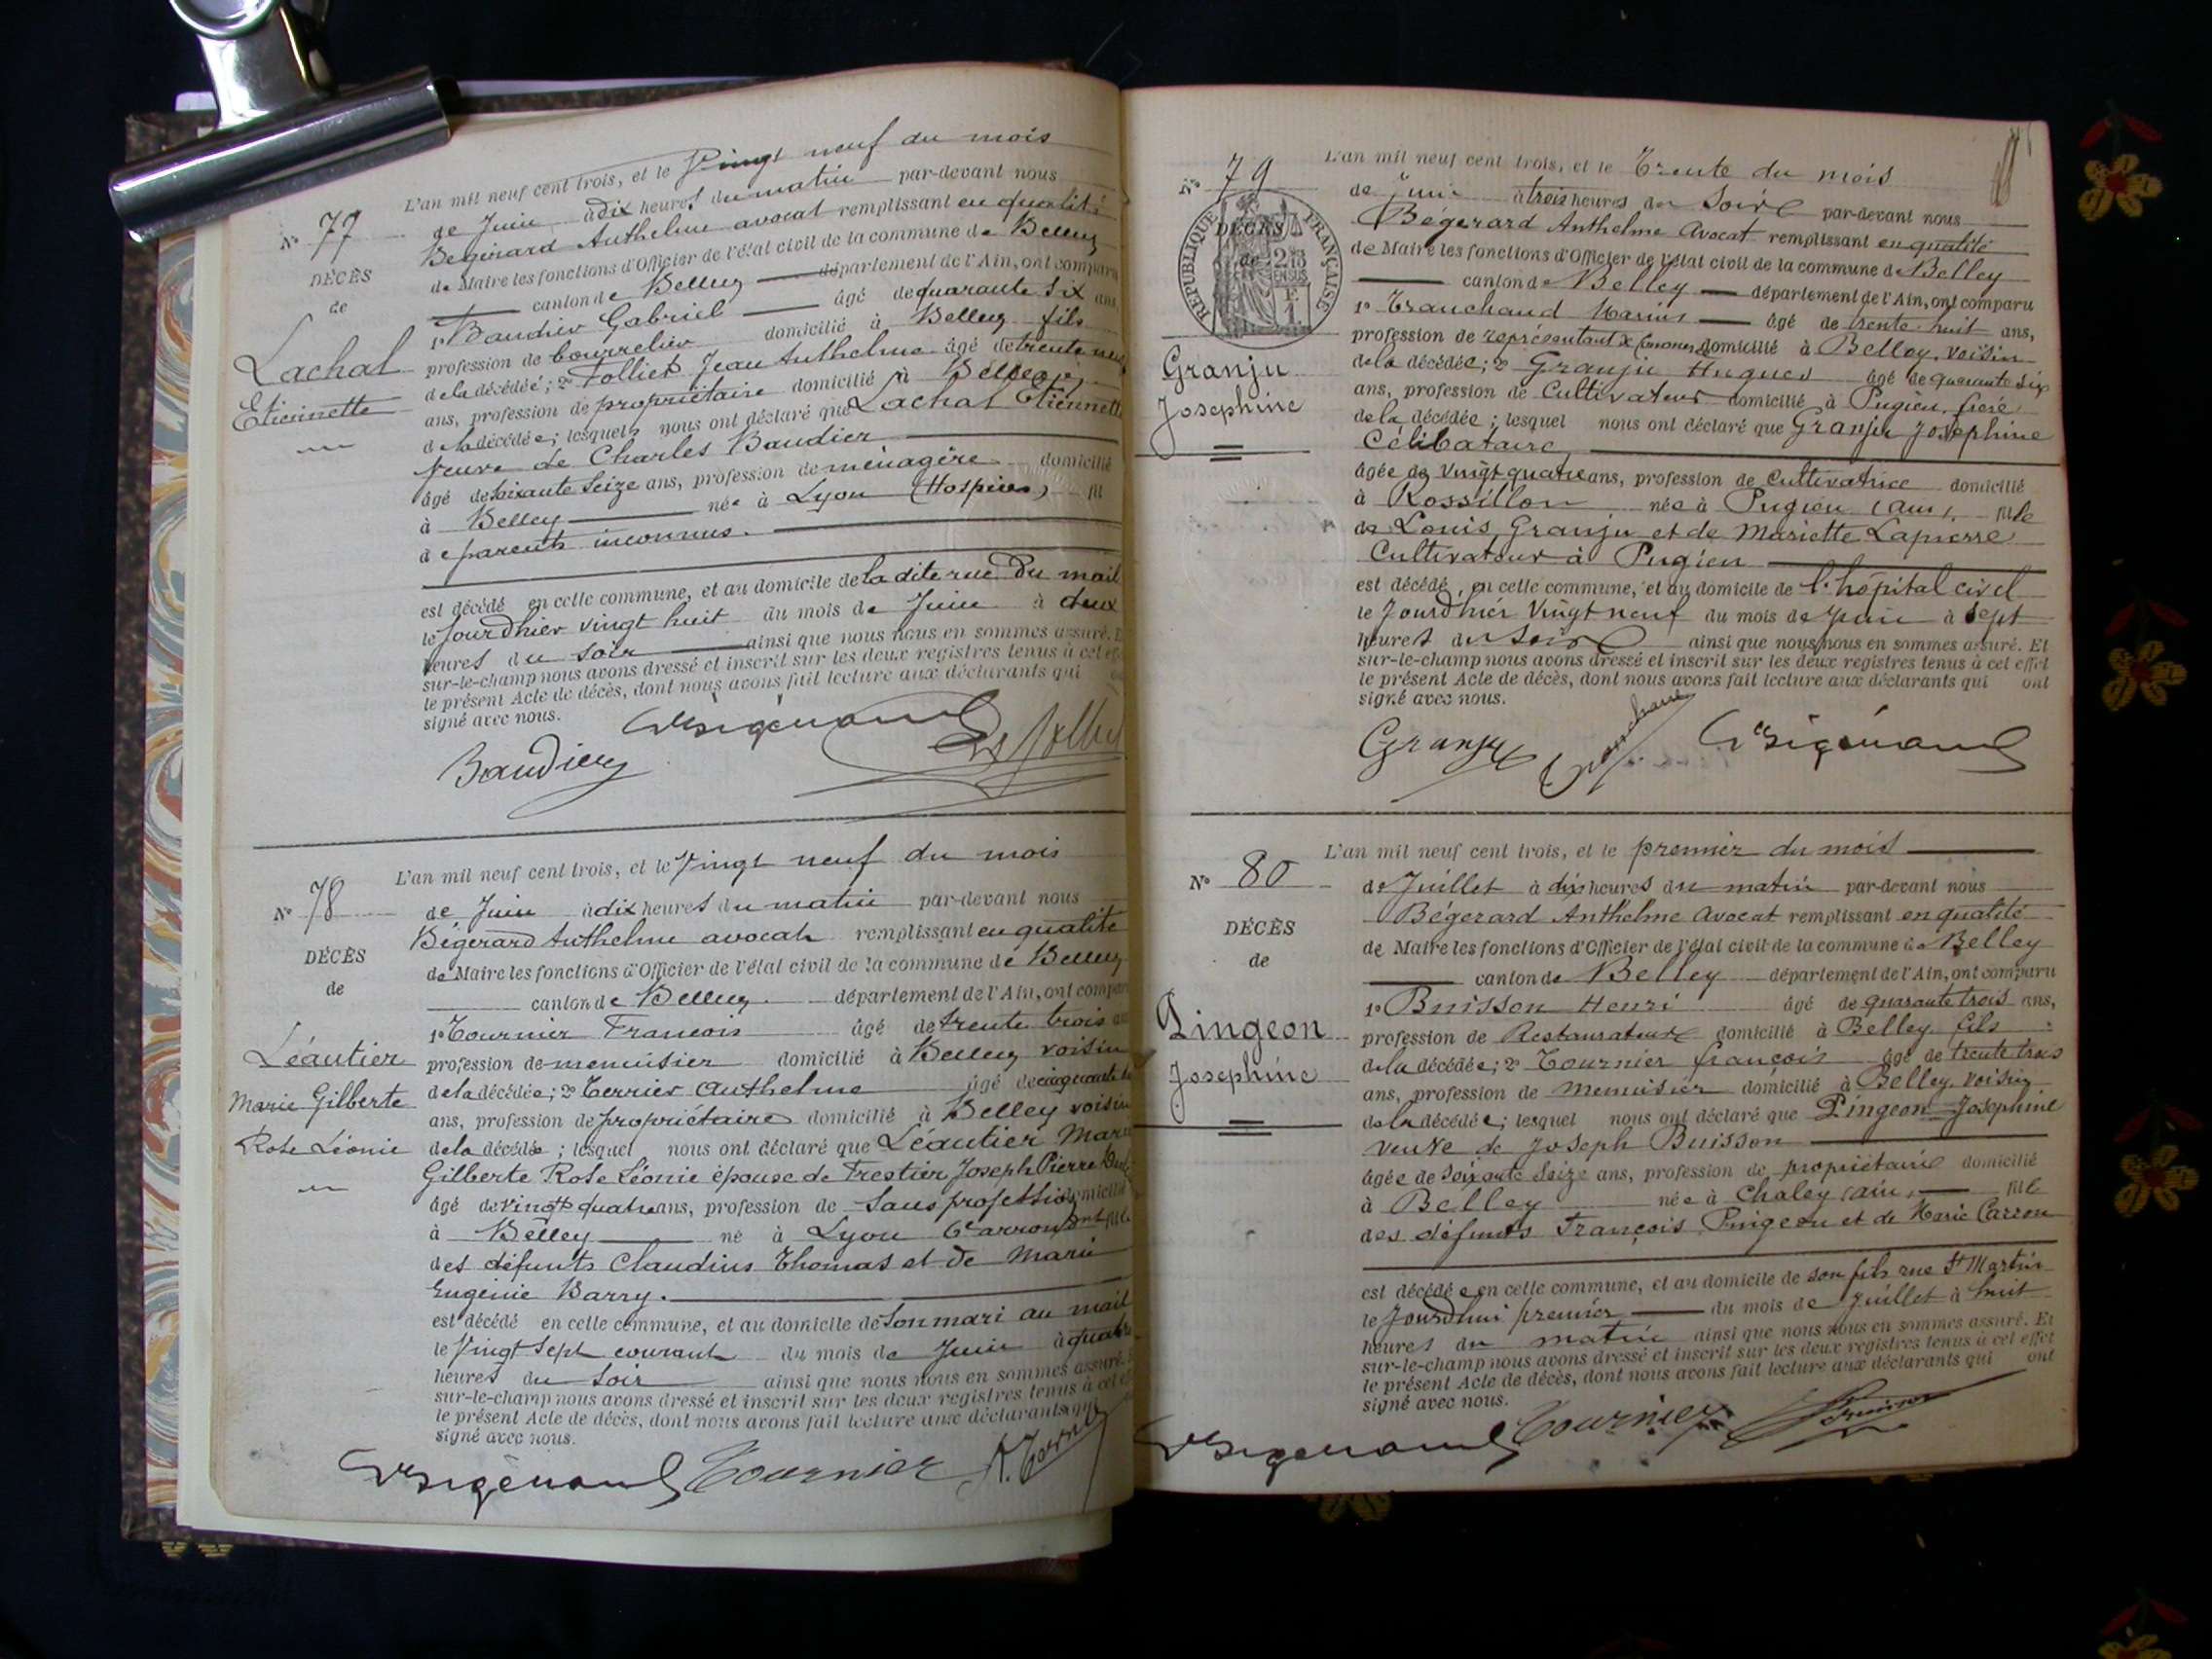 L'an mil neuf cent trois, et le Vingt neuf du mois
No 77 de Juin à dix heures du matin par-devant nous
Bégerard Anthelme avocat remplissant en qualité
DÉCÈS de Maire les fonctions d'Officier de l'état civil de la commune de Belley
de canton de Belley département de l'Ain, ont comparu
1o Baudier Gabriel âgé de quarante six ans,
Lachal profession de bourrelier domicilié à Belley fils
Etiennette de la décédée; 2o Folliet Jean Anthelme âgé de trente neuf
ans, profession de propriétaire domicilié à Belley
de la décédée; lesquels nous ont déclaré que Lachal Etiennette
Veuve de Charles Baudier
âgé de soixante seize ans, profession de ménagère domicilié
à Belley née à Lyon (Hospices) fil
de parents inconnus.
est décédé en cette commune, et au domicile de la dite rue Du mail
le jourdhier vingt huit du mois de Juin à deux
heures du soir ainsi que nous nous en sommes assuré. Et
sur-le-champ nous avons dressé et inscrit sur les deux registres tenus à cet effet
le présent Acte de décès, dont nous avons fait lecture aux déclarants qui
signé avec nous.
Baudier
L'an mil neuf cent trois, et le Vingt neuf du mois
No 78 de Juin à dix heures du matin par-devant nous
Bégerard Anthelme avocat remplissant en qualité
DÉCÈS de Maire les fonctions d'Officier de l'état civil de la commune de Belley
de canton de Belley département de l'Ain, ont comparu
1o Tournier Francois âgé de trente trois
Léautier profession de menuisier domicilié à Belley voisin
Marie Gilberte de la décédée; 2o Terrier Anthelme âgé de cinquante
ans, profession de propriétaire domicilié à Belley voisin
Rose Léonie de la décédée; lesquel nous ont déclaré que Léautier Marie
Gilberte Rose Léonie épouse de Trestier Joseph Pierre
âgé de vingt quatre ans, profession de Sans profession domicilié
à Belley né à Lyon 6e arrondnt fille
des défunts Claudius Thomas et de Marie
Eugénie Barry.
est décédé en cette commune, et au domicile de son mari au mail
le Vingt sept courant du mois de Juin à quatre
heures du soir ainsi que nous nous en sommes assuré.
sur-le-champ nous avons dressé et inscrit sur les deux registres tenus à cet
le présent Acte de décès, dont nous avons fait lecture aux déclarants qui
signé avec nous.
Tournier
L'an mil neuf cent trois, et le Trente du mois
No 79 de Juin à trois heures du Soir par-devant nous
Bégerard Anthelme Avocat remplissant en qualité
RÉPUBLIQUE FRANÇAISE
DÉCÈS de Maire les fonctions d'Officier de l'état civil de la commune de Belley
de canton de Belley département de l'Ain, ont comparu
1o Tranchand Marius âgé de trente huit ans,
profession de représentant de domicilié à Belley, voisin
Granju de la décédée; 2o Granju Hugues âgé de quarante six
Josephine ans, profession de Cultivateur domicilié à Pugieu, frère
de la décédée; lesquel nous ont déclaré que Granju Josephine
Célibataire,
âgée de vingt quatre ans, profession de Cultivatrice domicilié
à Rossillon née à Pugieu (ain), fille
de Louis, Granju et de Mariette Lapierre
Cultivateur à Pugieu
est décédé, en cette commune, et au domicile de l'hôpital civil
le Jourdhier Vingt neuf du mois de Juin à Sept
heures du Soir ainsi que nous nous en sommes assuré. Et
sur-le-champ nous avons dressé et inscrit sur les deux registres tenus à cet effet
le présent Acte de décès, dont nous avons fait lecture aux déclarants qui ont
signé avec nous.
Granju
L'an mil neuf cent trois, et le premier du mois
No 80 de Juillet à dix heures du matin par-devant nous
Bégerard Anthelme Avocat remplissant en qualité
DÉCÈS de Maire les fonctions d'Officier de l'état civil de la commune de Belley
de canton de Belley département de l'Ain, ont comparu
1o Buisson Henri âgé de quarante trois ans,
Pingeon profession de Restaurateur domicilié à Belley fils
Josephine de la décédée; 2o Tournier françois âgé de trente trois
ans, profession de menuisier domicilié à Belley, voisin
de la décédée; lesquel nous ont déclaré que Pingeon Josephine
veuve de Joseph Buisson
âgée de soixante seize ans, profession de propriétaire domicilié
à Belley née à Chaley (ain) fille
des défunts François Pingeon et de Marie Carron
est décédée en cette commune, et au domicile de son fils rue St Martin
le Jourdhui premier du mois de Juillet à huit
heures du matin ainsi que nous nous en sommes assuré. Et
sur-le-champ nous avons dressé et inscrit sur les deux registres tenus à cet effet
le présent Acte de décès, dont nous avons fait lecture aux déclarants qui ont
signé avec nous.
Tournier